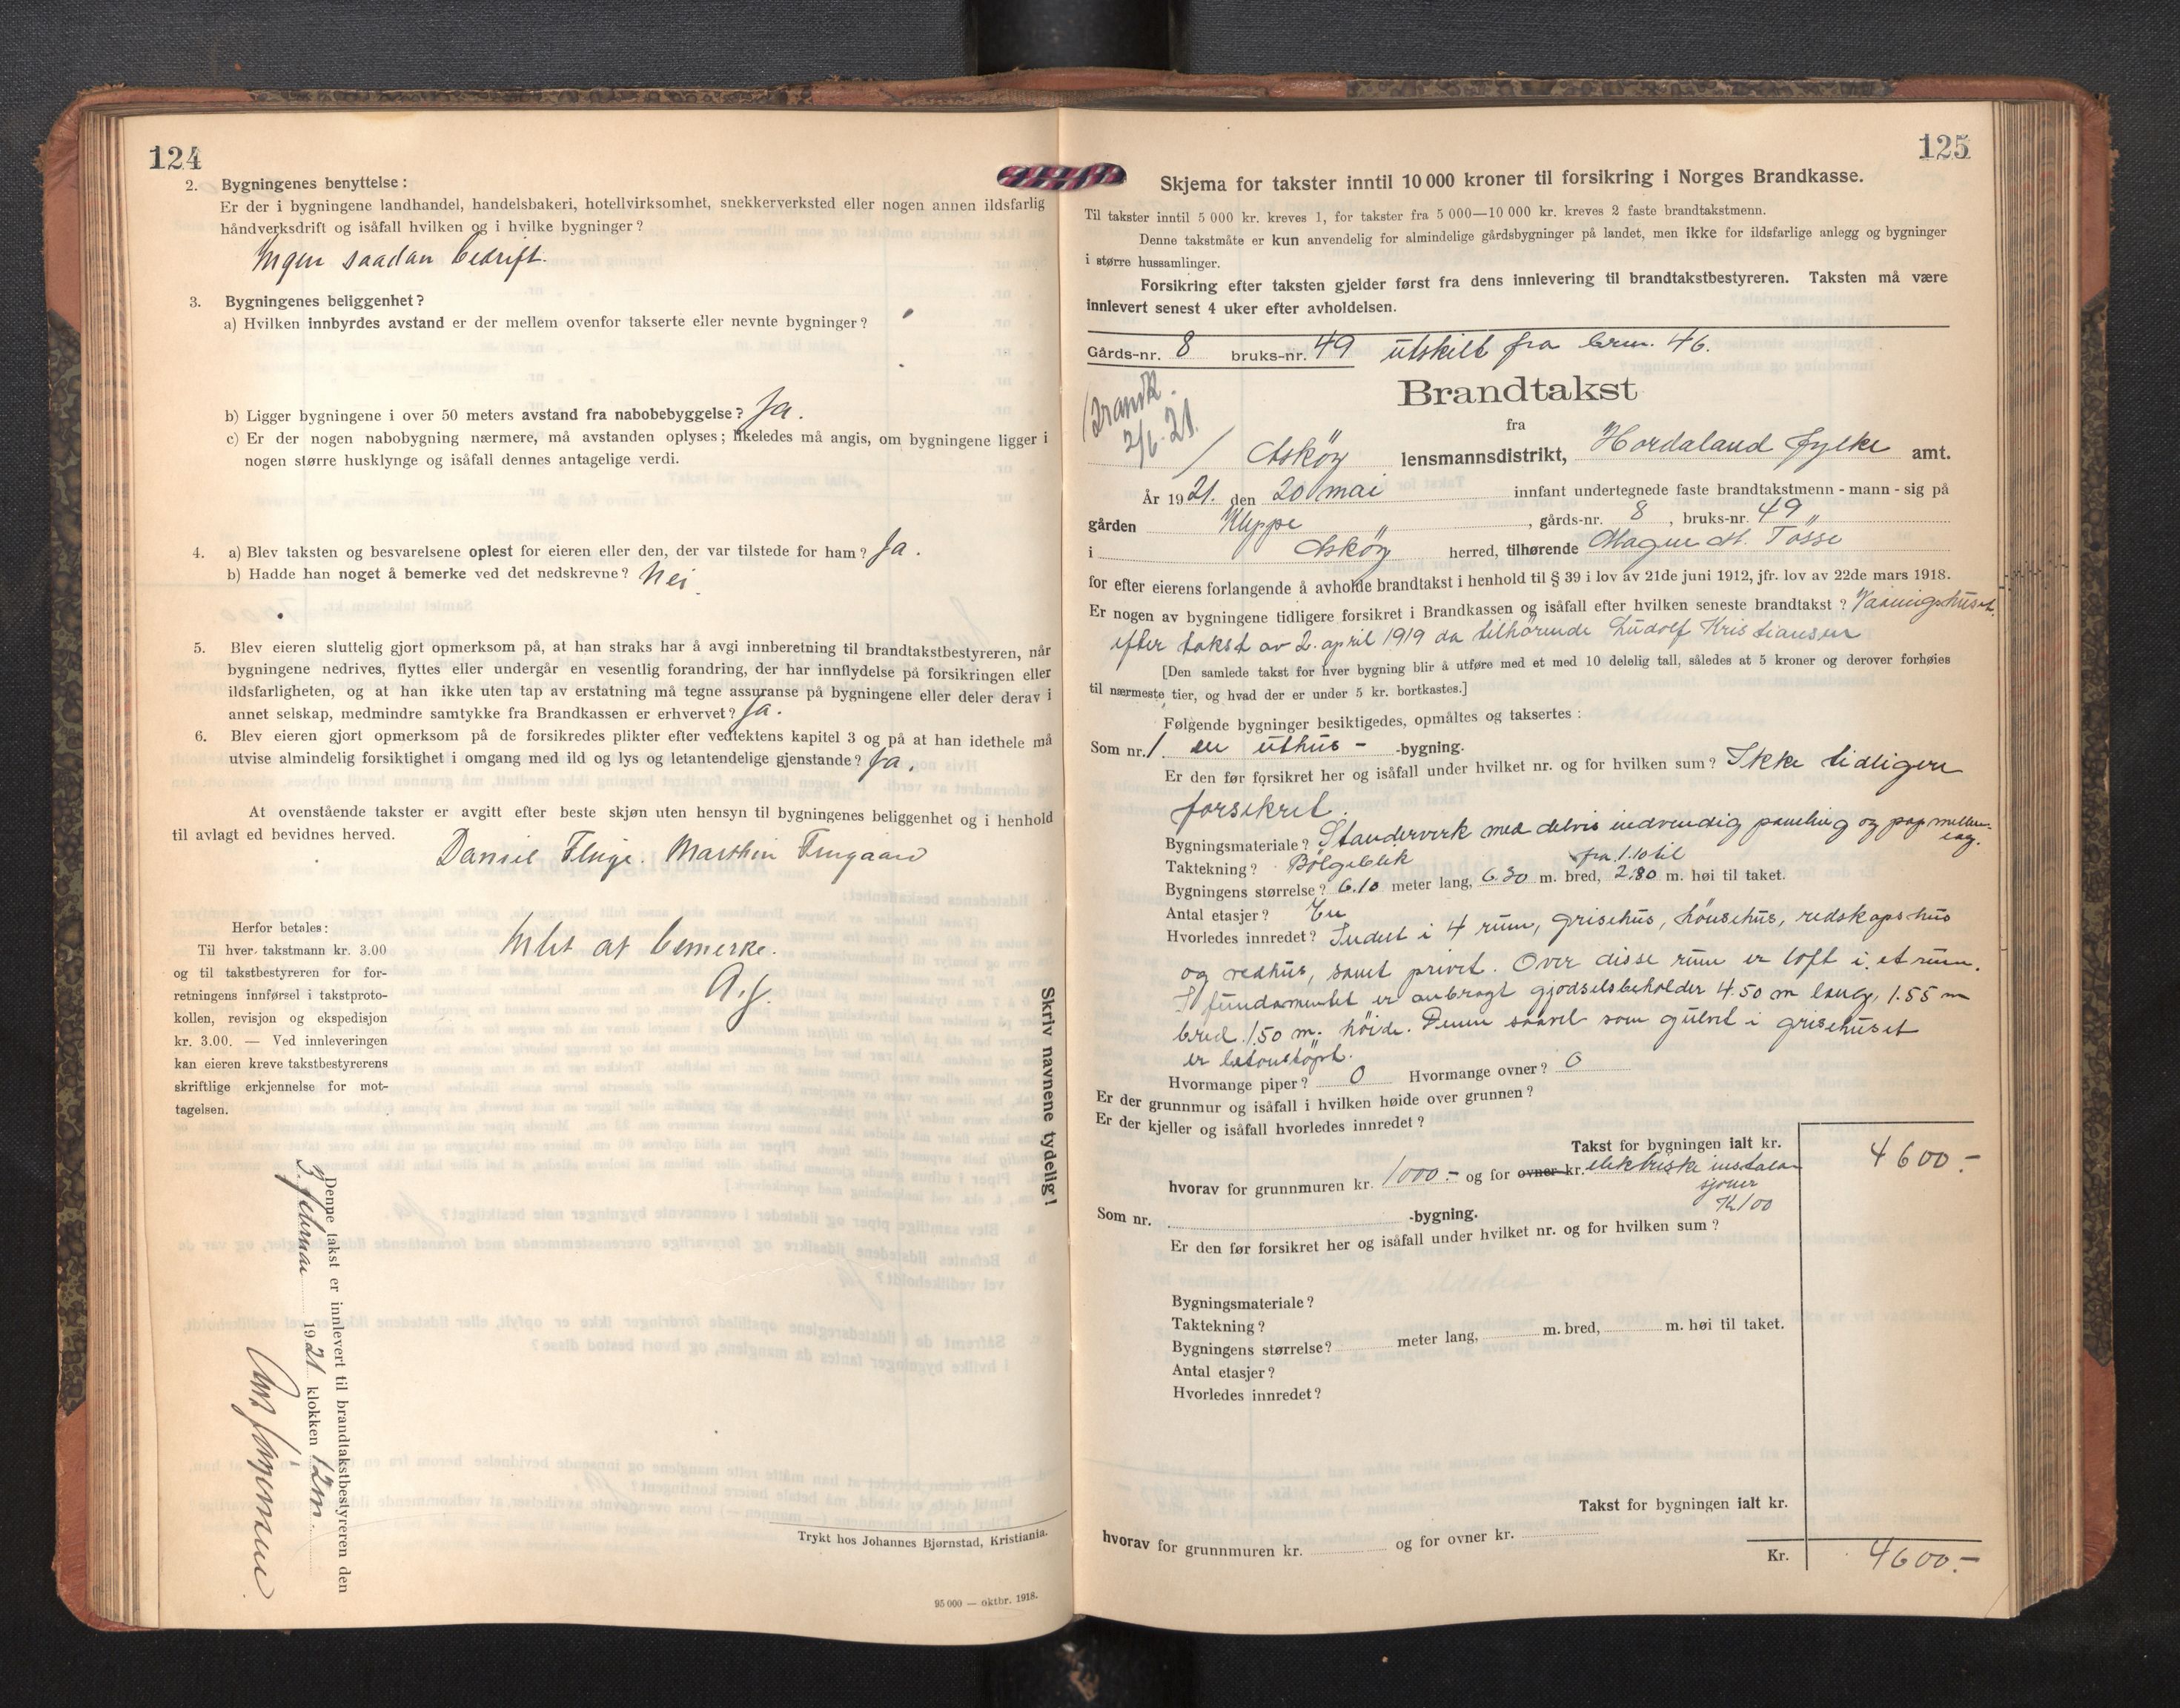 124
2. Bygningenes benyttelse:
Er der i bygningene landhandel, handelsbakeri, hotellvirksomhet, snekkerverksted eller nogen annen ildsfarlig
håndverksdrift og isåfall hvilken og i hvilke bygninger?
Ingen saadan bedrift.
3. Bygningenes beliggenhet?
a) Hvilken innbyrdes avstand er der mellem ovenfor takserte eller nevnte bygninger?
b) Ligger bygningene i over 50 meters avstand fra nabobebyggelse? Ja.
c) Er der nogen nabobygning nærmere, må avstanden oplyses; likeledes må angis, om bygningene ligger i
nogen større husklynge og isåfall dennes antagelige verdi.
4. a) Blev taksten og besvarelsene oplest for eieren eller den, der var tilstede for ham? Ja.
b) Hadde han noget å bemerke ved det nedskrevne? Nei.
5. Blev eieren sluttelig gjort opmerksom på, at han straks har å avgi innberetning til brandtakstbestyreren, når
bygningene nedrives, flyttes eller undergår en vesentlig forandring, der har innflydelse på forsikringen eller
ildsfarligheten, og at han ikke uten tap av erstatning må tegne assuranse på bygningene eller deler derav i
annet selskap, medmindre samtykke fra Brandkassen er erhvervet? Ja.
6. Blev eieren gjort opmerksom på de forsikredes plikter efter vedtektens kapitel 3 og på at han idethele må
utvise almindelig forsiktighet i omgang med ild og lys og letantendelige gjenstande? Ja.
At ovenstående takster er avgitt efter beste skjøn uten hensyn til bygningenes beliggenhet og i henhold
til avlagt ed bevidnes herved.
Daniel Marthin
Herfor betales:
Til hver takstmann kr. 3.00
og til takstbestyreren for for-
retningens innførsel i takstproto-
kollen, revisjon og ekspedisjon
kr. 3.00. — Ved innleveringen
kan eieren kreve takstbestyrerens
skriftlige erkjennelse for mot-
tagelsen.
Intet at bemerke.
A.J.
Skriv navnene tydelig!
Denne takst er innlevert til brandtakstbestyreren den
3. februar 1921 klokken 12 m.
Trykt hos Johannes Bjørnstad, Kristiania.
95 000 — oktbr. 1918.
125
Skjema for takster inntil 10 000 kroner til forsikring i Norges Brandkasse.
Til takster inntil 5 000 kr. kreves 1, for takster fra 5 000—10 000 kr. kreves 2 faste brandtakstmenn.
Denne takstmåte er kun anvendelig for almindelige gårdsbygninger på landet, men ikke for ildsfarlige anlegg og bygninger
i større hussamlinger.
Forsikring efter taksten gjelder først fra dens innlevering til brandtakstbestyreren. Taksten må være
innlevert senest 4 uker efter avholdelsen.
Gårds-nr. 8 bruks-nr. 49 utskilt fra brnr. 46.
2/6. 21.
Brandtakst
fra
Askøy lensmannsdistrikt, Hordaland fylke amt.
År 1921. den 20 mai innfant undertegnede faste brandtakstmenn - mann - sig på
gården Kleppe, gårds-nr. 8, bruks-nr. 49
i Askøy herred, tilhørende Magne M. Tøsse
for efter eierens forlangende å avholde brandtakst i henhold til § 39 i lov av 21de juni 1912, jfr. lov av 22de mars 1918.
Er nogen av bygningene tidligere forsikret i Brandkassen og isåfall efter hvilken seneste brandtakst? Vaaningshuset
efter takst av 2. april 1919 da tilhørende Ludolf Kristiansen
[Den samlede takst for hver bygning blir å utføre med et med 10 delelig tall, således at 5 kroner og derover forhøies
til nærmeste tier, og hvad der er under 5 kr. bortkastes.]
Følgende bygninger besiktigedes, opmåltes og taksertes:
Som nr. 1 en uthus- -bygning.
Er den før forsikret her og isåfall under hvilket nr. og for hvilken sum? Ikke tidligere
forsikret.
Bygningsmateriale? Standerverk med delvis indvendig paneling og pap mellem-
lag.
Taktekning? Bølgeblik
fra 1.10 til
Bygningens størrelse? 6.10 meter lang, 6.30 m. bred, 2.80 m. høi til taket.
Antal etasjer? En
Hvorledes innredet? Indelt i 4 rum, grisehus, hönsehus, redskapshus
og vedhus, samt privet. Over disse rum er loft i et rum.
I fundamentet er anbragt gjødselsbeholder 4.50 m lang, 1.55 m
bred 1.50 m. høide. Denne saavel som gulvet i grisehuset
er betonstøpt.
Hvormange piper? 0 Hvormange ovner? 0
Er der grunnmur og isåfall i hvilken høide over grunnen?
Er der kjeller og isåfall hvorledes innredet?
Takst for bygningen ialt kr. 4600.-
hvorav for grunnmuren kr. 1000.- og for ovner kr. elektriske instala-
sjoner
Kr 100
Som nr. -bygning.
Er den før forsikret her og isåfall under hvilket nr. og for hvilken sum?
Bygningsmateriale?
Taktekning?
Bygningens størrelse? meter lang, m. bred, m. høi til taket.
Antal etasjer?
Hvorledes innredet?
Takst for bygningen ialt kr.
hvorav for grunnmuren kr. og for ovner kr.
Kr. 4600.-